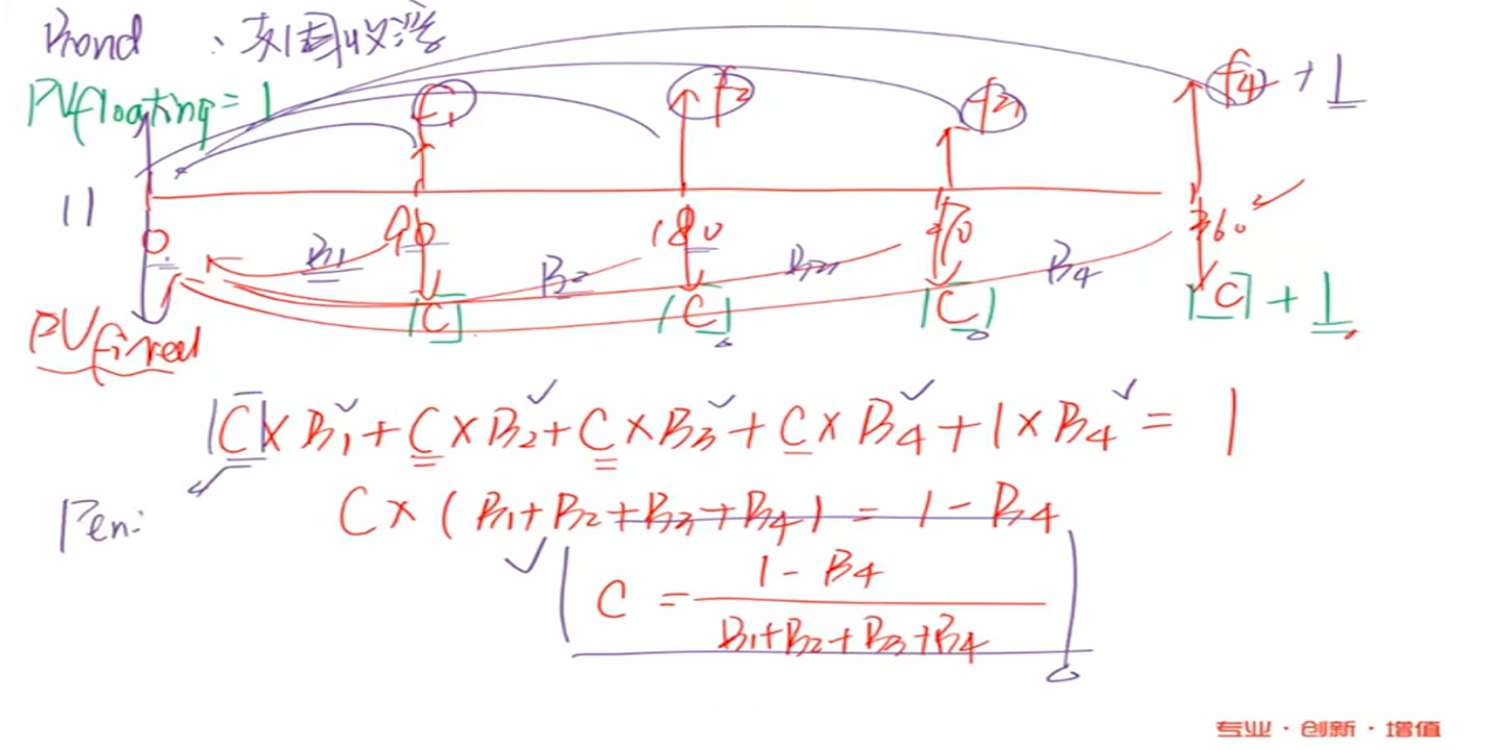 Bond : 支固收浮
PVfloating = 1
f1 f2 f3 f4 + 1
11
0 90 180 270 360
B1 B2 B3 B4
PVfixed
[C] [C] [C] [C] + 1
C × B1 + C × B2 + C × B3 + C × B4 + 1 × B4 = 1
Pen: C × ( B1 + B2 + B3 + B4 ) = 1 - B4
C = (1 - B4) / (B1 + B2 + B3 + B4)
专业 · 创新 · 增值